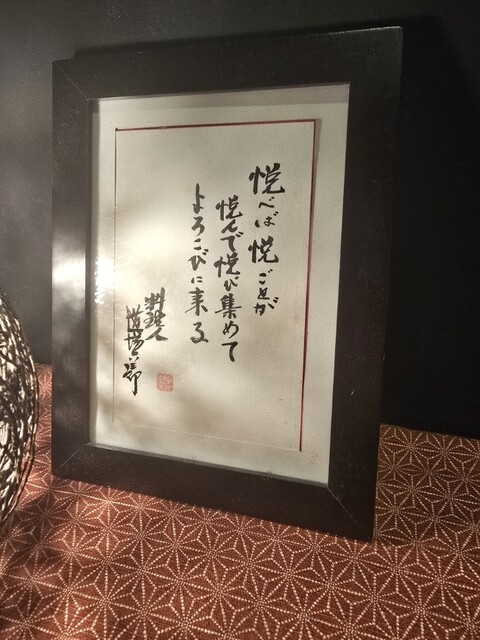 悦べば悦ごとが
悦んで悦び集めて
よろこびに来る
料理人
道場六三郎